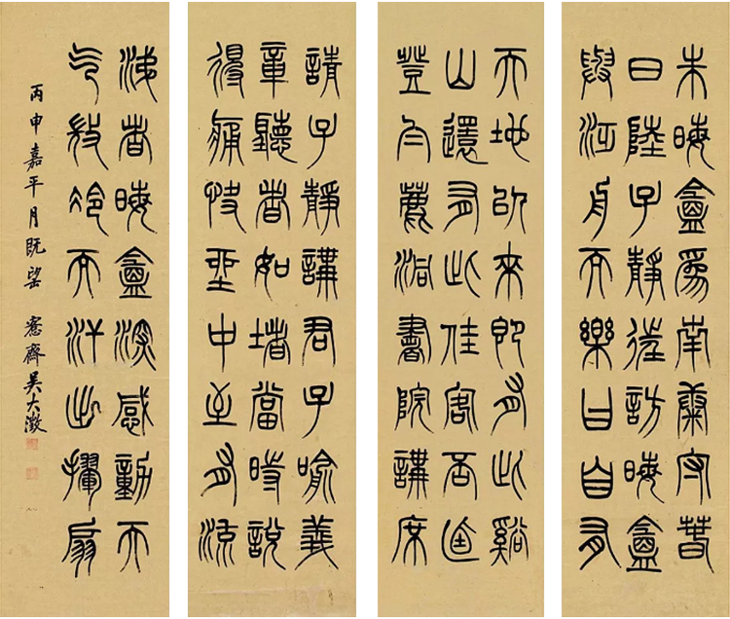 朱晦盦為南康守昔
日陸子靜往訪晦盦
與泛舟而樂曰自有
天地以來即有此谿
山還有此佳客否迺
登白鹿洞書院講席
請子靜講君子喻義
章聽者如堵當時說
得痛快坐中至有流
涕者晦盦深感動天
气微冷而汗出揮扇
丙申嘉平月既望 愙齋吳大澂